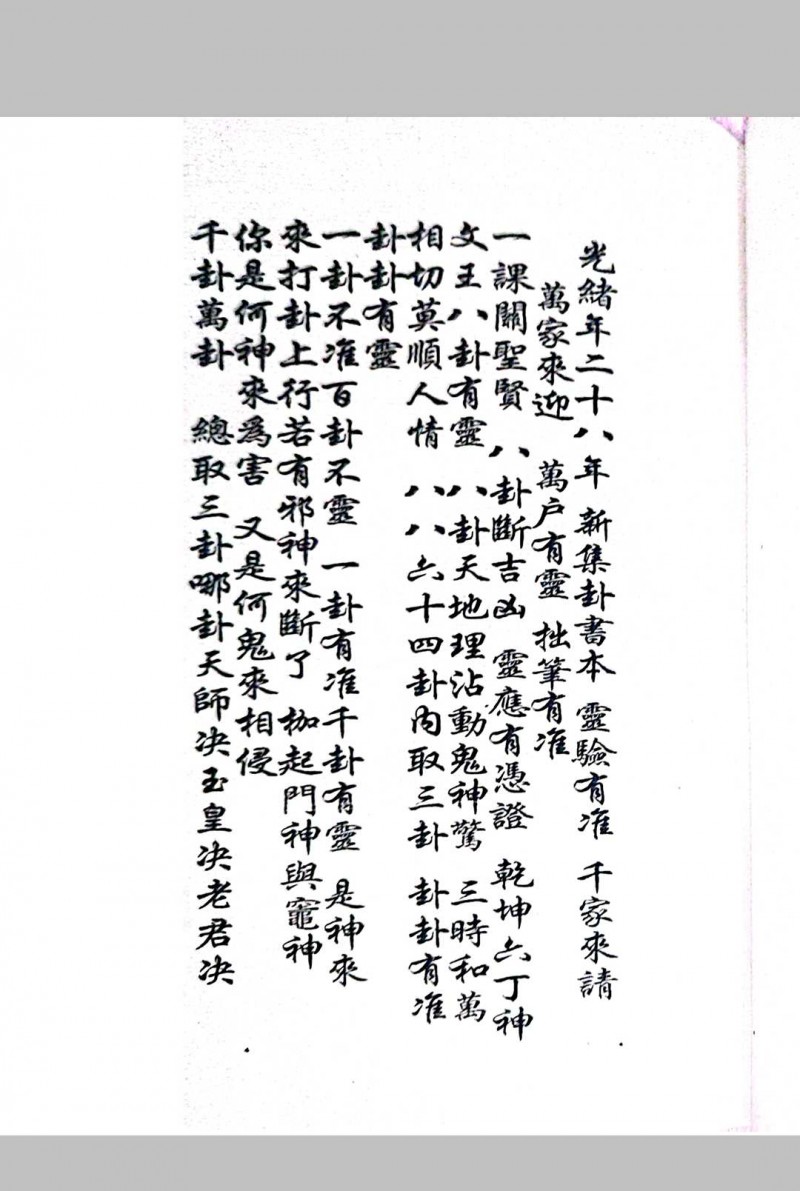 光緒年二十八年 新集卦書本 靈驗有准 千家來請
萬家來迎 萬户有靈 拙筆有准
一課關聖賢 八卦斷吉凶 靈應有憑證 乾坤六丁神
文王八卦有靈 八卦天地理沾動鬼神驚 三時和萬
相切莫順人情 八八六十四卦內取三卦 卦卦有准
卦卦有靈
一卦不准百卦不靈 一卦有准千卦有靈 是神來
來打卦上行若有邪神來斷了 枷起門神與竈神
你是何神來爲害 又是何鬼來相侵
千卦萬卦 總取三卦哪卦天師决玉皇决老君决